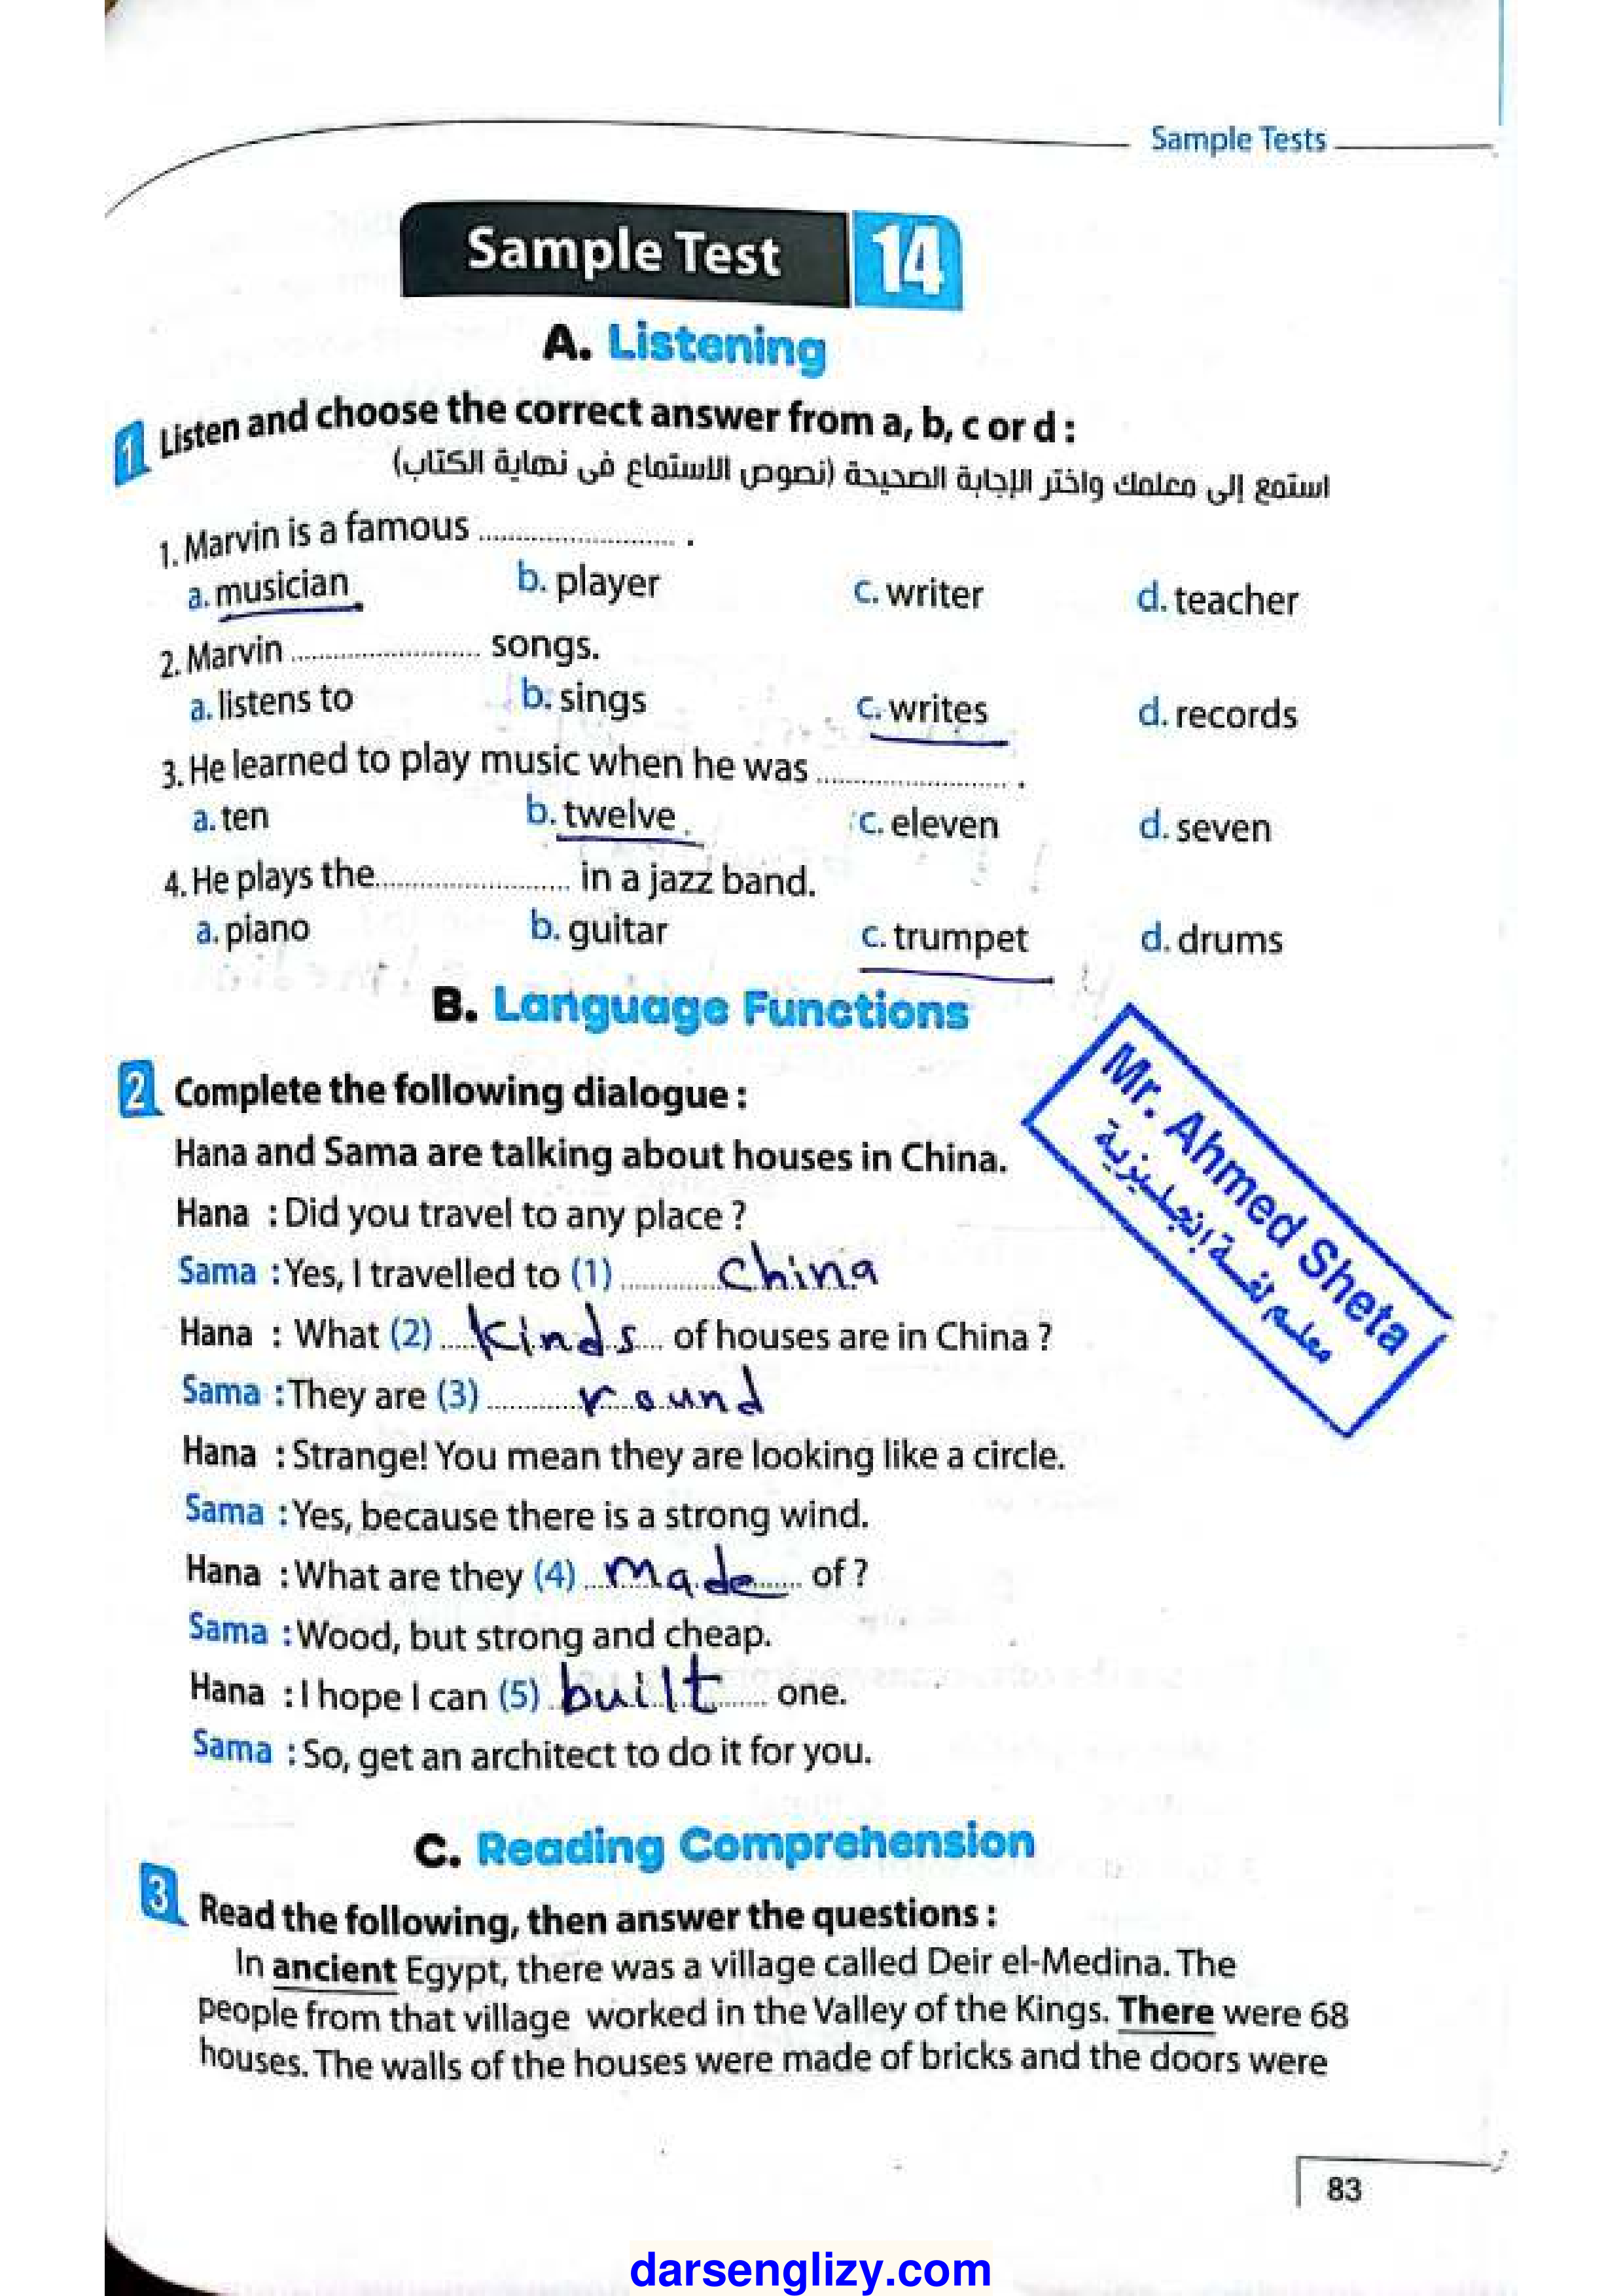 Sample Tests
Sample Test 14
A. Listening
1 Listen and choose the correct answer from a, b, c or d :
استمع إلى معلمك واختر الإجابة الصحيحة (نصوص الاستماع فى نهاية الكتاب)
1. Marvin is a famous .......................... .
a. musician b. player c. writer d. teacher
2. Marvin .......................... songs.
a. listens to b. sings c. writes d. records
3. He learned to play music when he was .......................... .
a. ten b. twelve c. eleven d. seven
4. He plays the.......................... in a jazz band.
a. piano b. guitar c. trumpet d. drums
B. Language Functions
2 Complete the following dialogue :
Hana and Sama are talking about houses in China.
Hana : Did you travel to any place ?
Sama : Yes, I travelled to (1) .......... China
Hana : What (2) ..... kinds ..... of houses are in China ?
Sama : They are (3) .......... round
Hana : Strange! You mean they are looking like a circle.
Sama : Yes, because there is a strong wind.
Hana : What are they (4) ... made ..... of ?
Sama : Wood, but strong and cheap.
Hana : I hope I can (5) built ..... one.
Sama : So, get an architect to do it for you.
Mr. Ahmed Sheta
معلم لغة إنجليزية
C. Reading Comprehension
3 Read the following, then answer the questions :
In ancient Egypt, there was a village called Deir el-Medina. The
people from that village worked in the Valley of the Kings. There were 68
houses. The walls of the houses were made of bricks and the doors were
83
darsenglizy.com